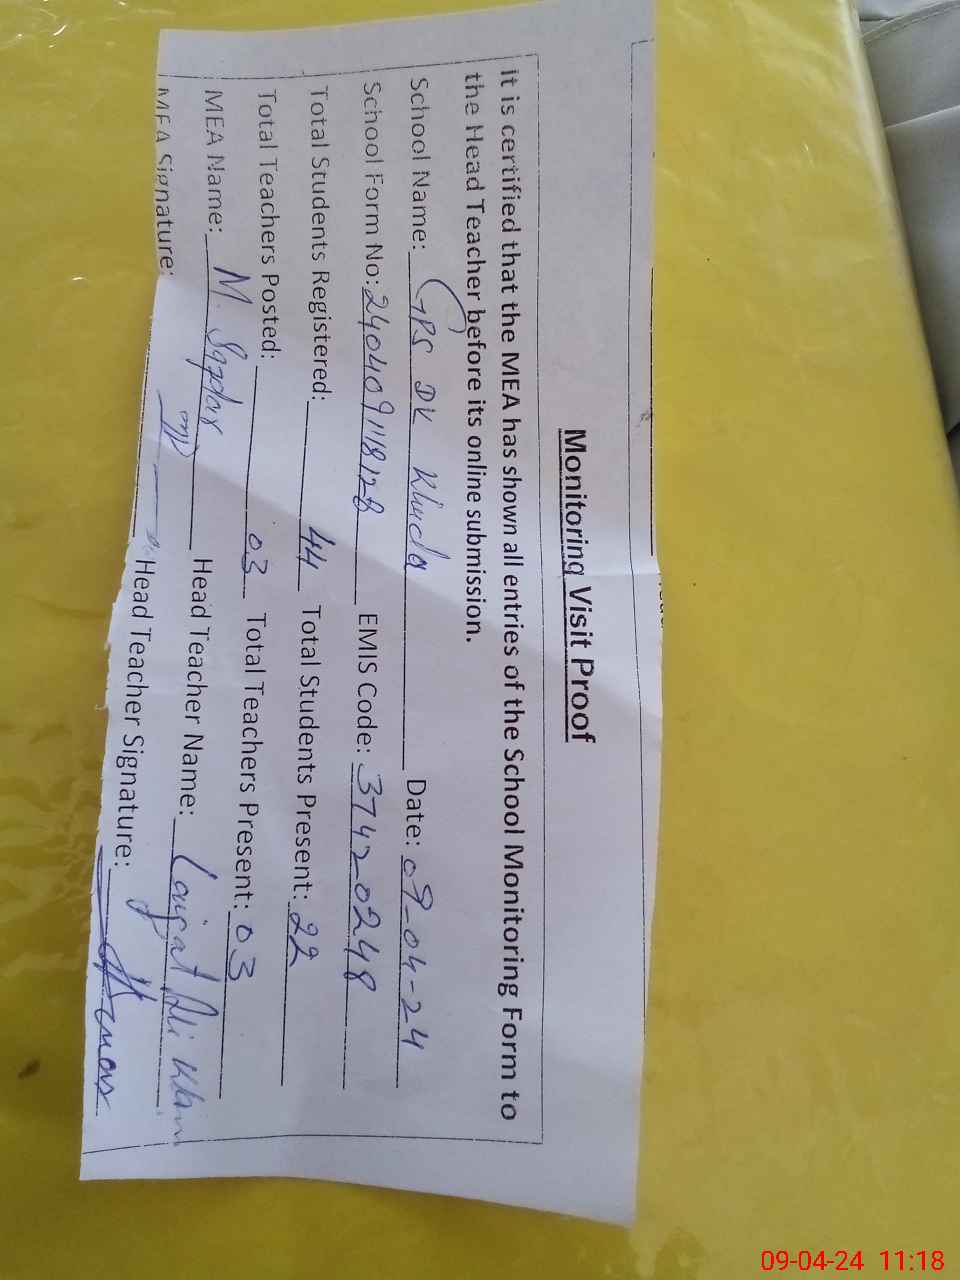 Monitoring Visit Proof
it is certified that the MEA has shown all entries of the School Monitoring Form to
the Head Teacher before its online submission.
School Name: GPS DK Khuda Date: 09-04-24
School Form No: 240409118128 EMIS Code: 37420248
Total Students Registered: 44 Total Students Present: 22
Total Teachers Posted: 03 Total Teachers Present: 03
MEA Name: M. Safdar Head Teacher Name: Liaqat Ali Khan
MEA Signature: Head Teacher Signature:
09-04-24 11:18